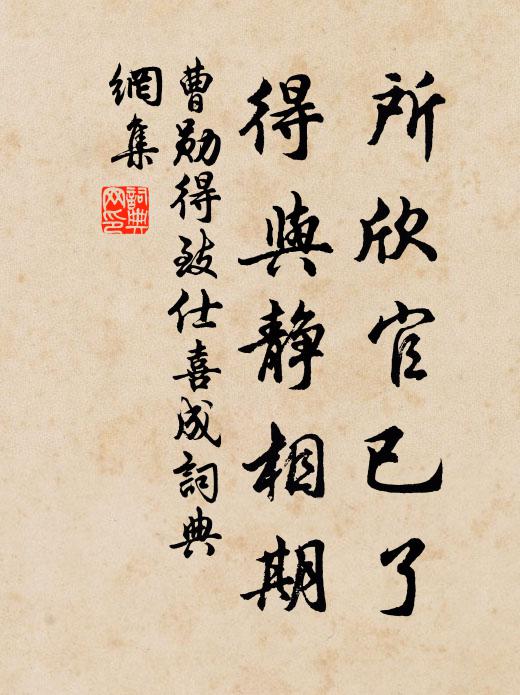 所欣官已了
得與靜相期
曹勛得致仕喜成詞典
網集
詞典
网印